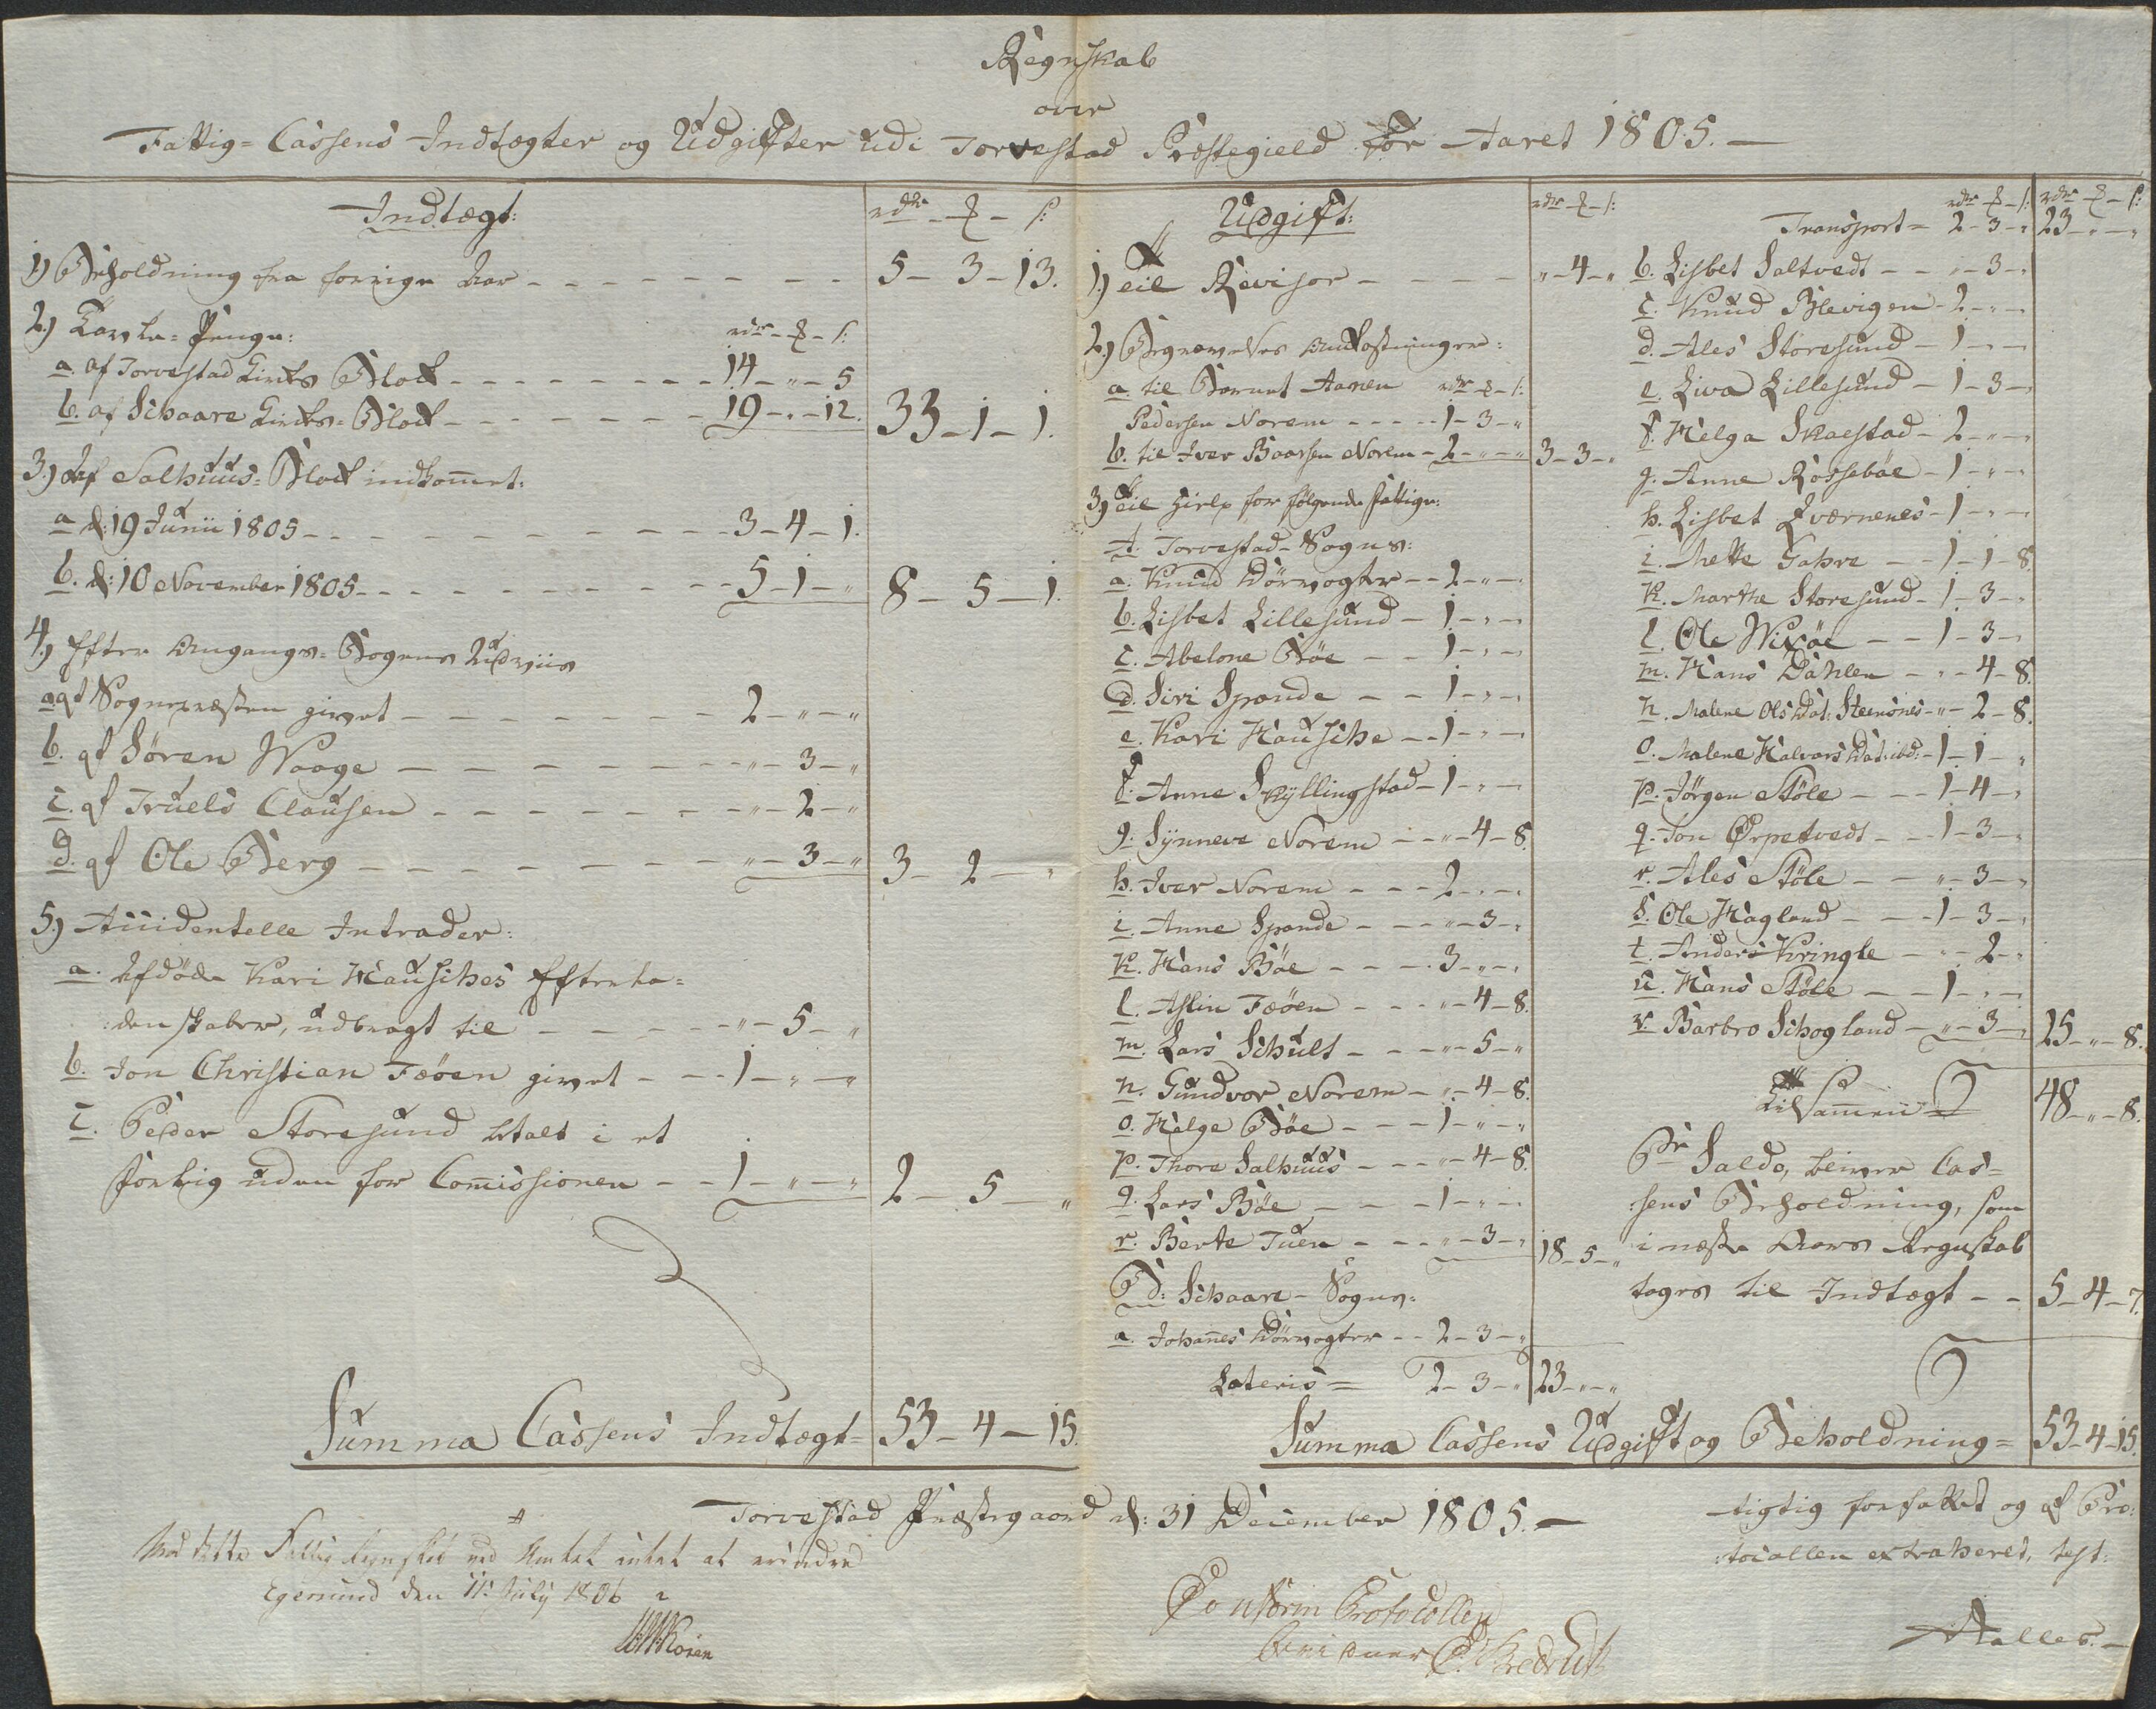 Regnskab
over
Fattig-Cassens Indtægter og Udgifter udi Torvestad Præstegield for Aaret 1805. —
Indtægt:
rdr - ƺ - s:
1.) Beholdning fra forrige Aar - - - - - - - 5 - 3 - 13.
2.) Tavle-Penge: rdr - ƺ - s:
a. af Torvestad Kirks Blok - - - - - - - - 14 - " - 5
b. af Schaare Kirks-Blok - - - - - - - 19 - " - 12. 33 - 1 - 1.
3.) Af Salhuus-Blok indkom̄et:
a d: 19 Junii 1805 - - - - - - - - - 3 - 4 - 1.
b. d: 10 November 1805 - - - - - - - - 5 - 1 - " 8 - 5 - 1.
4.) Efter Omgangs-Bogens Udviis
a. af Sognepræsten givet - - - - - - - 2 - " - "
b. af Sören Waage - - - - - - - " - 3 - "
c. af Truels Clausen - - - - - - - " - 2 - "
d. af Ole Berg - - - - - - - " - 3 - " 3 - 2 - "
5.) Accidentelle Intrader:
a. Afdöde Kari Hauskes Efterla=
:denskaber, udbragt til - - - - - " - 5 - "
b. Jon Christian Fæöen givet - - - 1 - " - "
c. Peder Storesund betalt i et
Forlig uden for Com̄issionen - - 1 - " - " 2 - 5 - "
Summa Cassens Indtægt = 53 - 4 - 15.
Udgift:
rdr - ƺ - s:
1.) til Revisor - - - - - " - 4 - "
2.) Begravelses Omkostninger:
a. til Barnet Aanen rdr - ƺ - s:
Pedersen Norem - - - - 1 - 3 - "
b. til Iver Baarsen Norem - 2 - " - " 3 - 3 - "
3.) til Hielp for fölgende Fattige:
A. Torvestad-Sogns:
a. Knud Dörvogter - - 2 - " - "
b. Lisbet Lillesund - 1 - " - "
c. Abelone Böe - - 1 - " - "
d. Siri Spande - - 1 - " - "
e. Kari Hauske - - 1 - " - "
f. Anne Skyllingstad - 1 - " - "
g. Synneve Norem - - " - 4 - 8.
h. Iver Norem - - - 2 - " - "
i. Anne Spande - - - " - 3 - "
k. Hans Böe - - - 3 - " - "
l. Aslin Fæöen - - - " - 4 - 8.
m. Lars Schult - - - " - 5 - "
n. Gundvor Norem - " - 4 - 8.
o. Helge Böe - - - 1 - " - "
p. Thore Salhuus - - - " - 4 - 8.
q. Lars Böe - - - 1 - " - "
r. Berte Tuen - - - " - 3 - " 18 - 5 - "
B: Schaare-Sogns:
a. Johan̄es Dörvogter - - 2 - 3 - "
Lateris = 2 - 3 - " 23 - " - "
rdr - ƺ - s: rdr - ƺ - s:
Transport = 2 - 3 - " 23 - " - "
b. Lisbet Saltvedt - - " - 3 - "
c. Knud Blevigen - 2 - " - "
d. Ales Storesund - 1 - " - "
e. Liva Lillesund - 1 - 3 - "
f. Helga Skaestad - 2 - " - "
g. Anne Rosseböe - 1 - " - "
h. Lisbet Qværnenes - 1 - " - "
i. Mette Gahre - - 1 - 1 - 8.
k. Marthe Storesund - 1 - 3 - "
l. Ole Wixöe - - 1 - 3 - "
m. Hans Dahlen - " - 4 - 8.
n. Malene Ols Dat: Steensnes - " - 2 - 8.
o. Malene Halvors Dat: ibd: - 1 - 1 - "
p. Jörgen Stöle - - - 1 - 4 - "
q. Jon Ørpetvedt - - 1 - 3 - "
r. Ales Stöle - - " - 3 - "
s. Ole Hagland - - - 1 - 3 - "
t. Anders Kringle - - " - 2 - "
u. Hans Stöle - - 1 - " - "
v. Barbro Schogland - " - 3 - " 25 - " - 8.
Tilsam̄en 48 - " - 8.
Pr Saldo, bliver Cas=
:sens Beholdning, som
i næste Aars Regnskab
tages til Indtægt - - 5 - 4 - 7.
Summa Cassens Udgift og Beholdning = 53 - 4 - 15.
Torvestad Præstegaard d: 31 December 1805. —
rigtig forfattet og af Pro:
:tocollen extraheret, test:
Aalles. —
Ved dette Fattig Regnskab ved Amtet intet at erindre
Egersund den 11: July 1806
Conform Protocollen